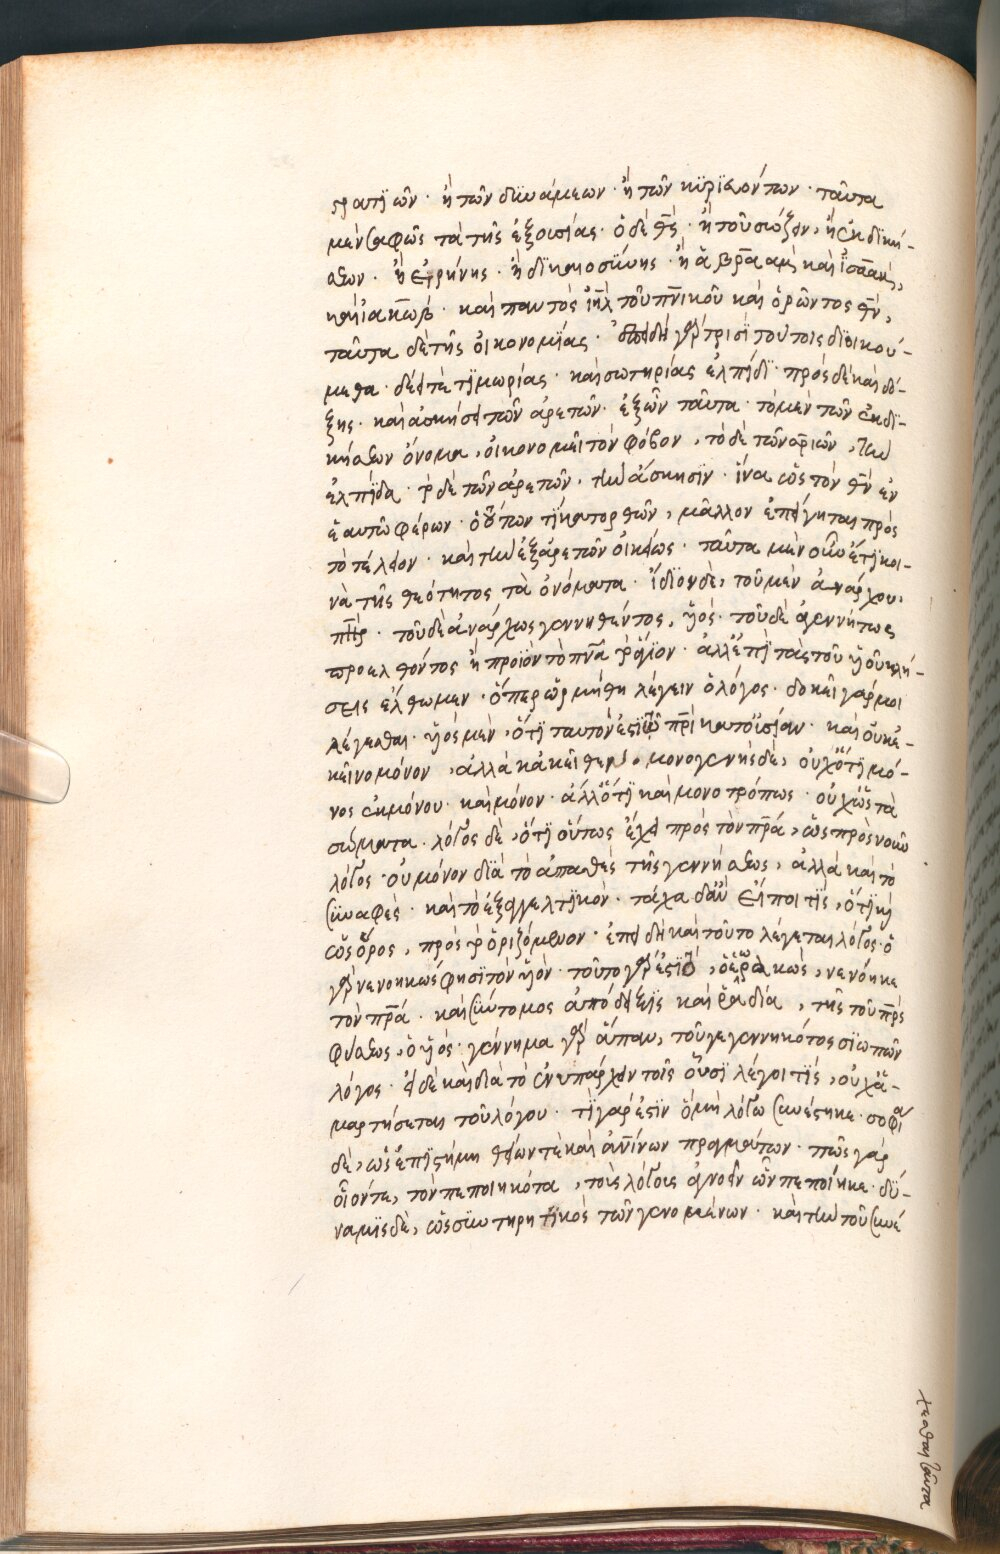 στρατϊῶν · ἢ τῶν δϋνάμεων · ἢ τῶν κϋρϊευόντων · ταῦτα
μὲν σαφῶς τὰ τῆς ἐξουσίας · ὁ δὲ θ̅ς̅ · ἢ τοῦ σώζειν, ἢ ἐκδϊκή-
σεων · ἢ εἰρήνης · ἢ δϊκαιοσϋύνης · ἢ ἀβρ̅αὰμ, καὶ ἰ̈σαὰκ,
καὶ ἰακὼβ · καὶ παντὸς ἰη̅λ τοῦ πν̅ικοῦ καὶ ὁρῶντος θ̅ν̅,
ταῦτα δὲ τῆς οἰκονομΐας · ἐπειδὴ γὰρ τρισὶ τούτοις διοικού-
μεθα · δέει τε τϊμωρίας · καὶ σωτηρίας ἐλπίδϊ · πρὸς δὲ καὶ δό-
ξης · καὶ ἀσκήσει τῶν ἀρετῶν · ἐξ ὧν ταῦτα · τὸ μὲν τῶν ἐκδϊ-
κήσεων ὄνομα, οἰκονομεῖ τὸν φόβον, τὸ δὲ τῶν σ̅ριῶν, τὴν
ἐλπΐδα · τὸ δὲ τῶν ἀρετῶν, τὴν ἄσκησϊν · ἵνα ὡς τὸν θ̅ν̅ ἐν
ἑαυτῷ φέρων · ὁ τούτων τϊ κατορθῶν, μᾶλλον ἐπείγηται πρὸς
τὸ τέλειον · καὶ τὴν ἐξ ἀρετῶν οἰκείωσ · ταῦτα μὲν οὖν ἔτϊ κοι-
νὰ τῆς θεότητος τὰ ὀνόματα · ἴδϊον δὲ, τοῦ μὲν ἀνάρχου,
π̅η̅ρ · τοῦ δὲ ἀνάρχως γεννηθέντος, ὑϊός · τοῦ δὲ ἀγεννήτως
προελθόντος ἢ προϊὸν τὸ πν̅α τὸ ἅγϊον · ἀλλ' ἐπϊ τὰς τοῦ ὑϊοῦ κλή-
σεις ἔλθωμεν · ὅπερ ὥρμήθη λέγειν ὁ λόγος · δοκεῖ γάρ μοι
λέγεσθαι · ὑϊὸς μὲν, ὅτϊ ταυτόν ἐστϊ τῷ π̅ρ̅ὶ κατ' οὐσΐαν · καὶ οὐκ ἐ-
κεῖνο μόνον, ἀλλὰ κἀκεῖθεν, μονογενὴς δὲ, οὐχ' ὅτϊ μό-
νος ἐκ μόνου · καὶ μόνον · ἀλλ' ὅτϊ καὶ μονοτρόπως · οὐχ' ὡς τὰ
σώματα · λόγος δὲ, ὅτϊ οὕτως ἔχει πρὸς τὸν π̅ρ̅α, ὡς πρὸς νοῦν
λόγος · οὐ μόνον δϊὰ τὸ ἀπαθὲς τῆς γεννήσεως, ἀλλὰ καὶ τὸ
σϋναφὲς · καὶ τὸ ἐξαγγελτϊκόν · τάχα δ' ἂν εἴποι τϊς, ὅτϊ καὶ
ὡς ὅρος, πρὸς τὸ ὁριζόμενον · ἐπειδὴ καὶ τοῦτο λέγεται λόγος · ὁ
γὰρ νενοηκὼς φησϊ τὸν ὑϊὸν · τοῦτο γάρ ἐστϊ τὸ, ὁ ἑωρακὼς, νενόηκε
τὸν π̅ρ̅α · καὶ σύντομος ἀπόδειξϊς καὶ ῥαδία, τῆς τοῦ π̅ρ̅ς
φύσεως, ὁ ὑϊὸς · γέννημα γὰρ ἅπαν, τοῦ γεγεννηκότος σϊωπῶν
λόγος · εἰ δὲ καὶ διὰ τὸ ἐνυπάρχειν τοῖς οὖσϊ λέγοι τϊς, οὐχ' ἁ-
μαρτήσεται τοῦ λόγου · τϊ γάρ ἐστϊν ὃ μὴ λόγῳ συνέστηκε · σοφία
δὲ, ὡς ἐπϊστήμη θείων τὲ καὶ ἀν̅ίνων πραγμάτων · πῶς γὰρ
οἷόντε, τὸν πεποιηκότα, τοὺς λόγους ἀγνοεῖν ὧν πεποίηκε · δύ-
ναμϊς δὲ, ὡς σϋντηρητϊκὸς τῶν γενομένων · καὶ τὴν τοῦ συνέ
χεσθαι ταῦτα